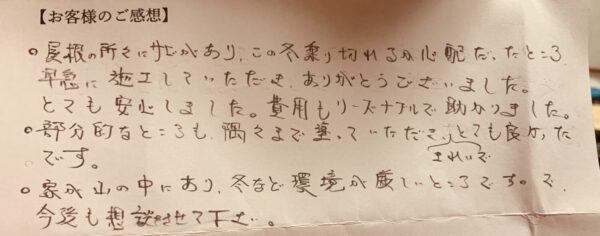 【お客様のご感想】
○屋根の所々にサビがあり、この冬乗り切れるか心配だったところ、
早急に施工していただき、ありがとうございました。
とても安心しました。費用もリーズナブルで助かりました。
○部分的なところも、隅々まで塗っていただき、とても良かった
きれいで
です。
○家が山の中にあり、冬など環境が厳しいところですので、
今後も相談させて下さい。